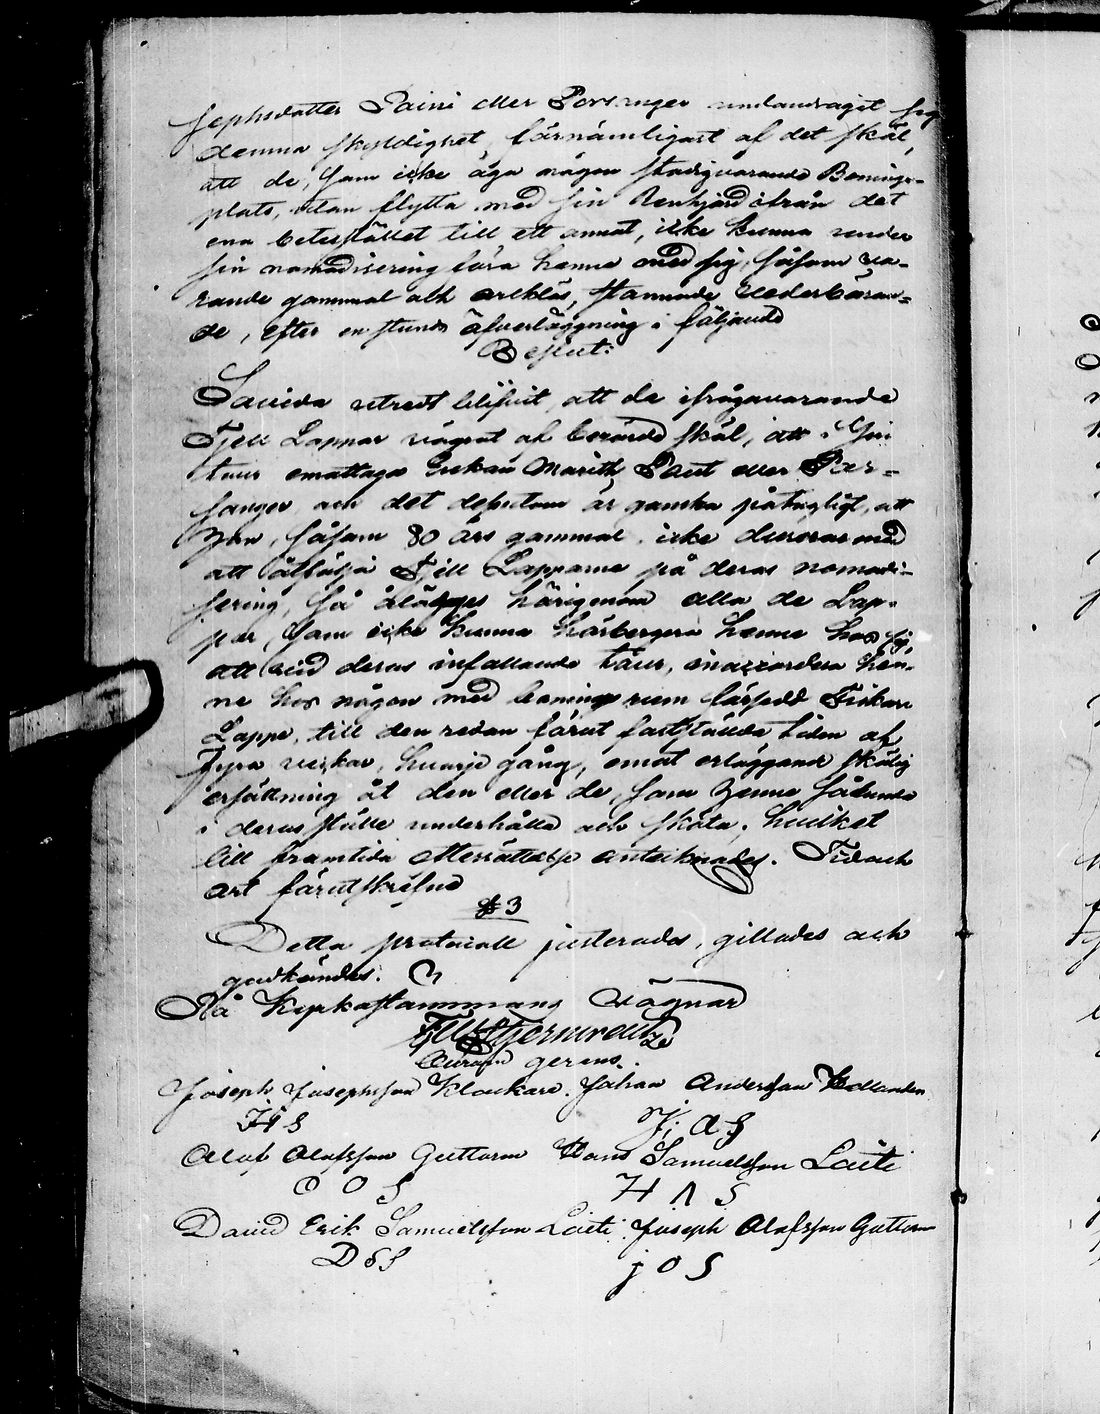 sephsdotter Paini eller Porsanger undandragit sig
denna skyldighet, förnämligast af det skäl,
att de, som icke äga någon stadigvarande Bonings-
plats, utan flytta med sin Renhjord ifrån det
ena betesstället till ett annat, icke kunna under
sin nomadisering föra henne med sig, såsom va-
rande gammal och orklös, stannade Vederböran-
de, efter en stunds öfverläggning i följande
Beslut:
Sawida utredt blifvit, att de ifrågavarande
Fjell Lappar vägrat af berörde skäl, att i sin
tour emottaga Enkan Marith Paut eller Por-
sanger, och det dessutom är ganska påtagligt, att
hon, såsom 80 års gammal, icke
att åtfölja Fjell Lapparne på deras nomadi-
sering, så ålägges härigenom alla de Lap-
par, som icke kunna härbergera henne hos sig,
att vid deras infallande tour, inackordera hen-
ne hos någon med boningsrum försedd Fiskare
Lappe, till den redan förut fastställda tiden af
fyra veckor, hvarje gång, emot erläggande skälig
ersättning åt den eller de, som henne sålunda
i deras ställe underhålla och sköta, hvilket
till framtida efterrättelse antecknades. Tid och
ort förutskrefne
§ 3
Detta protocoll justerades, gillades och
godkändes.
På Kyrkostämmans Vägnar

Curam gerens.
Joseph Josephsson Klockare. Johan Andersson Kollander
J I S J. A S
Olof Olofsson Guttorm Hans Samuelsson Laiti
O O S H A S
David Erik Samuelsson Laiti. Joseph Olofsson Guttorm
D S S J O S